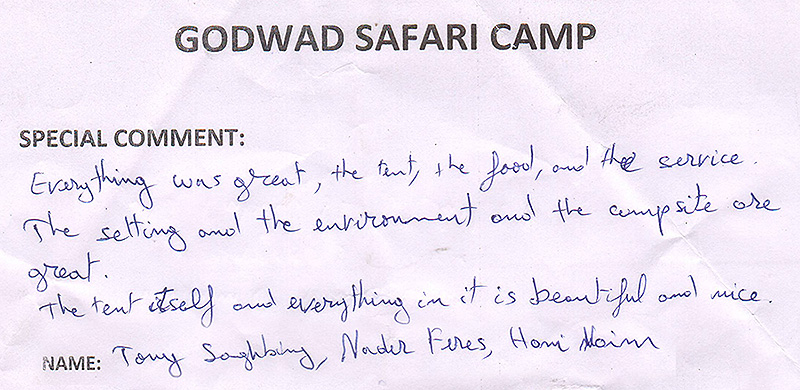 GODWAD SAFARI CAMP
SPECIAL COMMENT:
Everything was great, the tent, the food, and the service.
The setting and the environment and the campsite are
great.
The tent itself and everything in it is beautiful and nice.
NAME: Tony Saghbiny, Nader Feres, Hani Naim